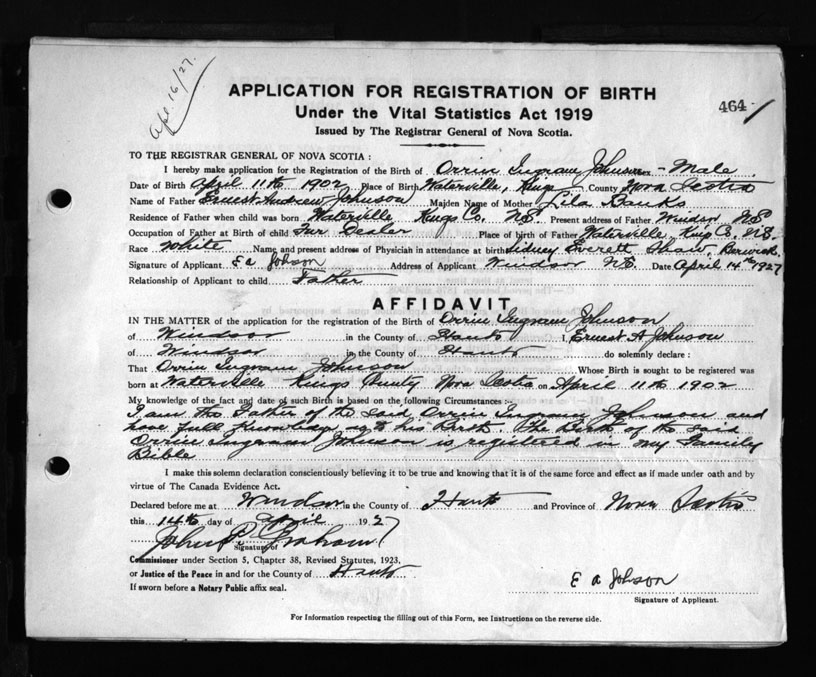 Apl 16/27.
APPLICATION FOR REGISTRATION OF BIRTH
464
Under the Vital Statistics Act 1919
Issued by The Registrar General of Nova Scotia.
TO THE REGISTRAR GENERAL OF NOVA SCOTIA :
I hereby make application for the Registration of the Birth of Orrin Ingram Johnson - Male
Date of Birth April 11th 1902 Place of Birth Waterville, Kings County Nova Scotia
Name of Father Ernest Andrew Johnson Maiden Name of Mother Lila Banks
Residence of Father when child was born Waterville Kings Co. N.S. Present address of Father Windsor N.S
Occupation of Father at Birth of child Fur Dealer Place of birth of Father Waterville, King Co. N.S.
Race White Name and present address of Physician in attendance at birth Sidney Everett Shaw, Berwick.
Signature of Applicant E a Johson Address of Applicant Windsor N.S. Date April 14th 1927
Relationship of Applicant to child Father
AFFIDAVIT
IN THE MATTER of the application for the registration of the Birth of Orrin Ingram Johnson
of Windsor in the County of Hants I Ernest A Johnson
of Windsor in the County of Hants do solemnly declare :
That Orrin Ingram Johnson Whose Birth is sought to be registered was
born at Waterville Kings County Nova Scotia on April 11th 1902
My knowledge of the fact and date of such Birth is based on the following Circumstances :-
I am the Father of the said Orrin Ingram Johnson and
have full knowledge as to his Birth. The Birth of the said
Orrin Ingram Johnson is registered in my Family
Bible
I make this solemn declaration conscientiously believing it to be true and knowing that it is of the same force and effect as if made under oath and by
virtue of The Canada Evidence Act.
Declared before me at Windsor in the County of Hants and Province of Nova Scotia
this 14th day of April 1927
John P. Graham
Signature of
Commissioner under Section 5, Chapter 38, Revised Statutes, 1923,
or Justice of the Peace in and for the County of Hants
E a Johson
If sworn before a Notary Public affix seal.
Signature of Applicant.
For Information respecting the filling out of this Form, see Instructions on the reverse side.